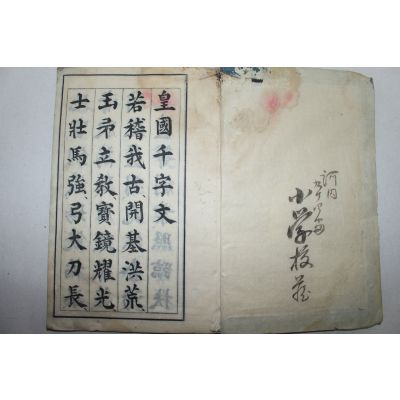 皇國千字文
若稽我古開基洪荒
玉矛立教寶鏡耀光
士壯馬強弓大刀長
河内
小学校蔵